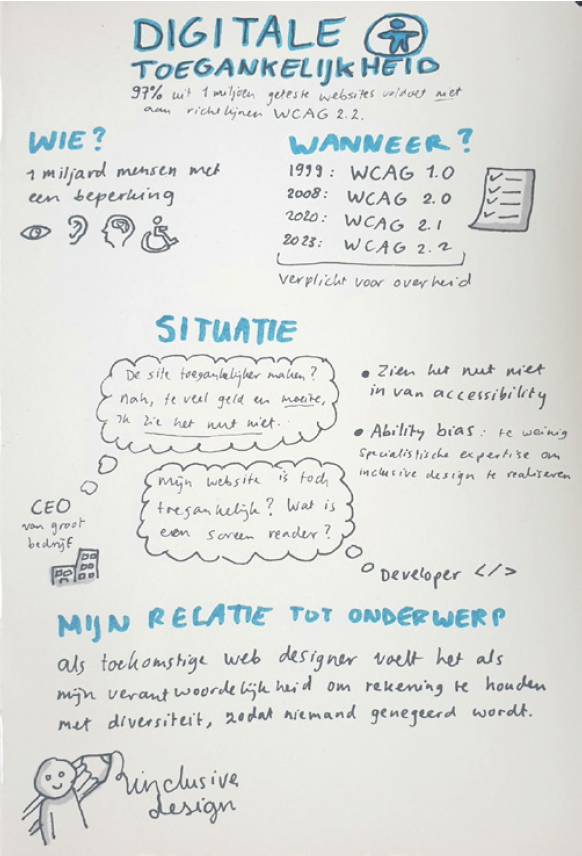 DIGITALE
TOEGANKELIJKHEID
97% uit 1 miljoen geteste websites voldoet niet
aan richtlijnen WCAG 2.2.
WIE?
1 miljard mensen met
een beperking
WANNEER?
1999: WCAG 1.0
2008: WCAG 2.0
2020: WCAG 2.1
2023: WCAG 2.2
verplicht voor overheid
SITUATIE
De site toegankelijker maken?
Nah, te veel geld en moeite,
Ik zie het nut niet..
Mijn website is toch
toegankelijk? Wat is
een screen reader?
CEO
van groot
bedrijf
Developer </>
• Zien het nut niet
in van accessibility
• Ability bias: te weinig
specialistische expertise om
inclusive design te realiseren
MIJN RELATIE TOT ONDERWERP
als toekomstige web designer voelt het als
mijn verantwoordelijkheid om rekening te houden
met diversiteit, zodat niemand genegeerd wordt.
inclusive
design